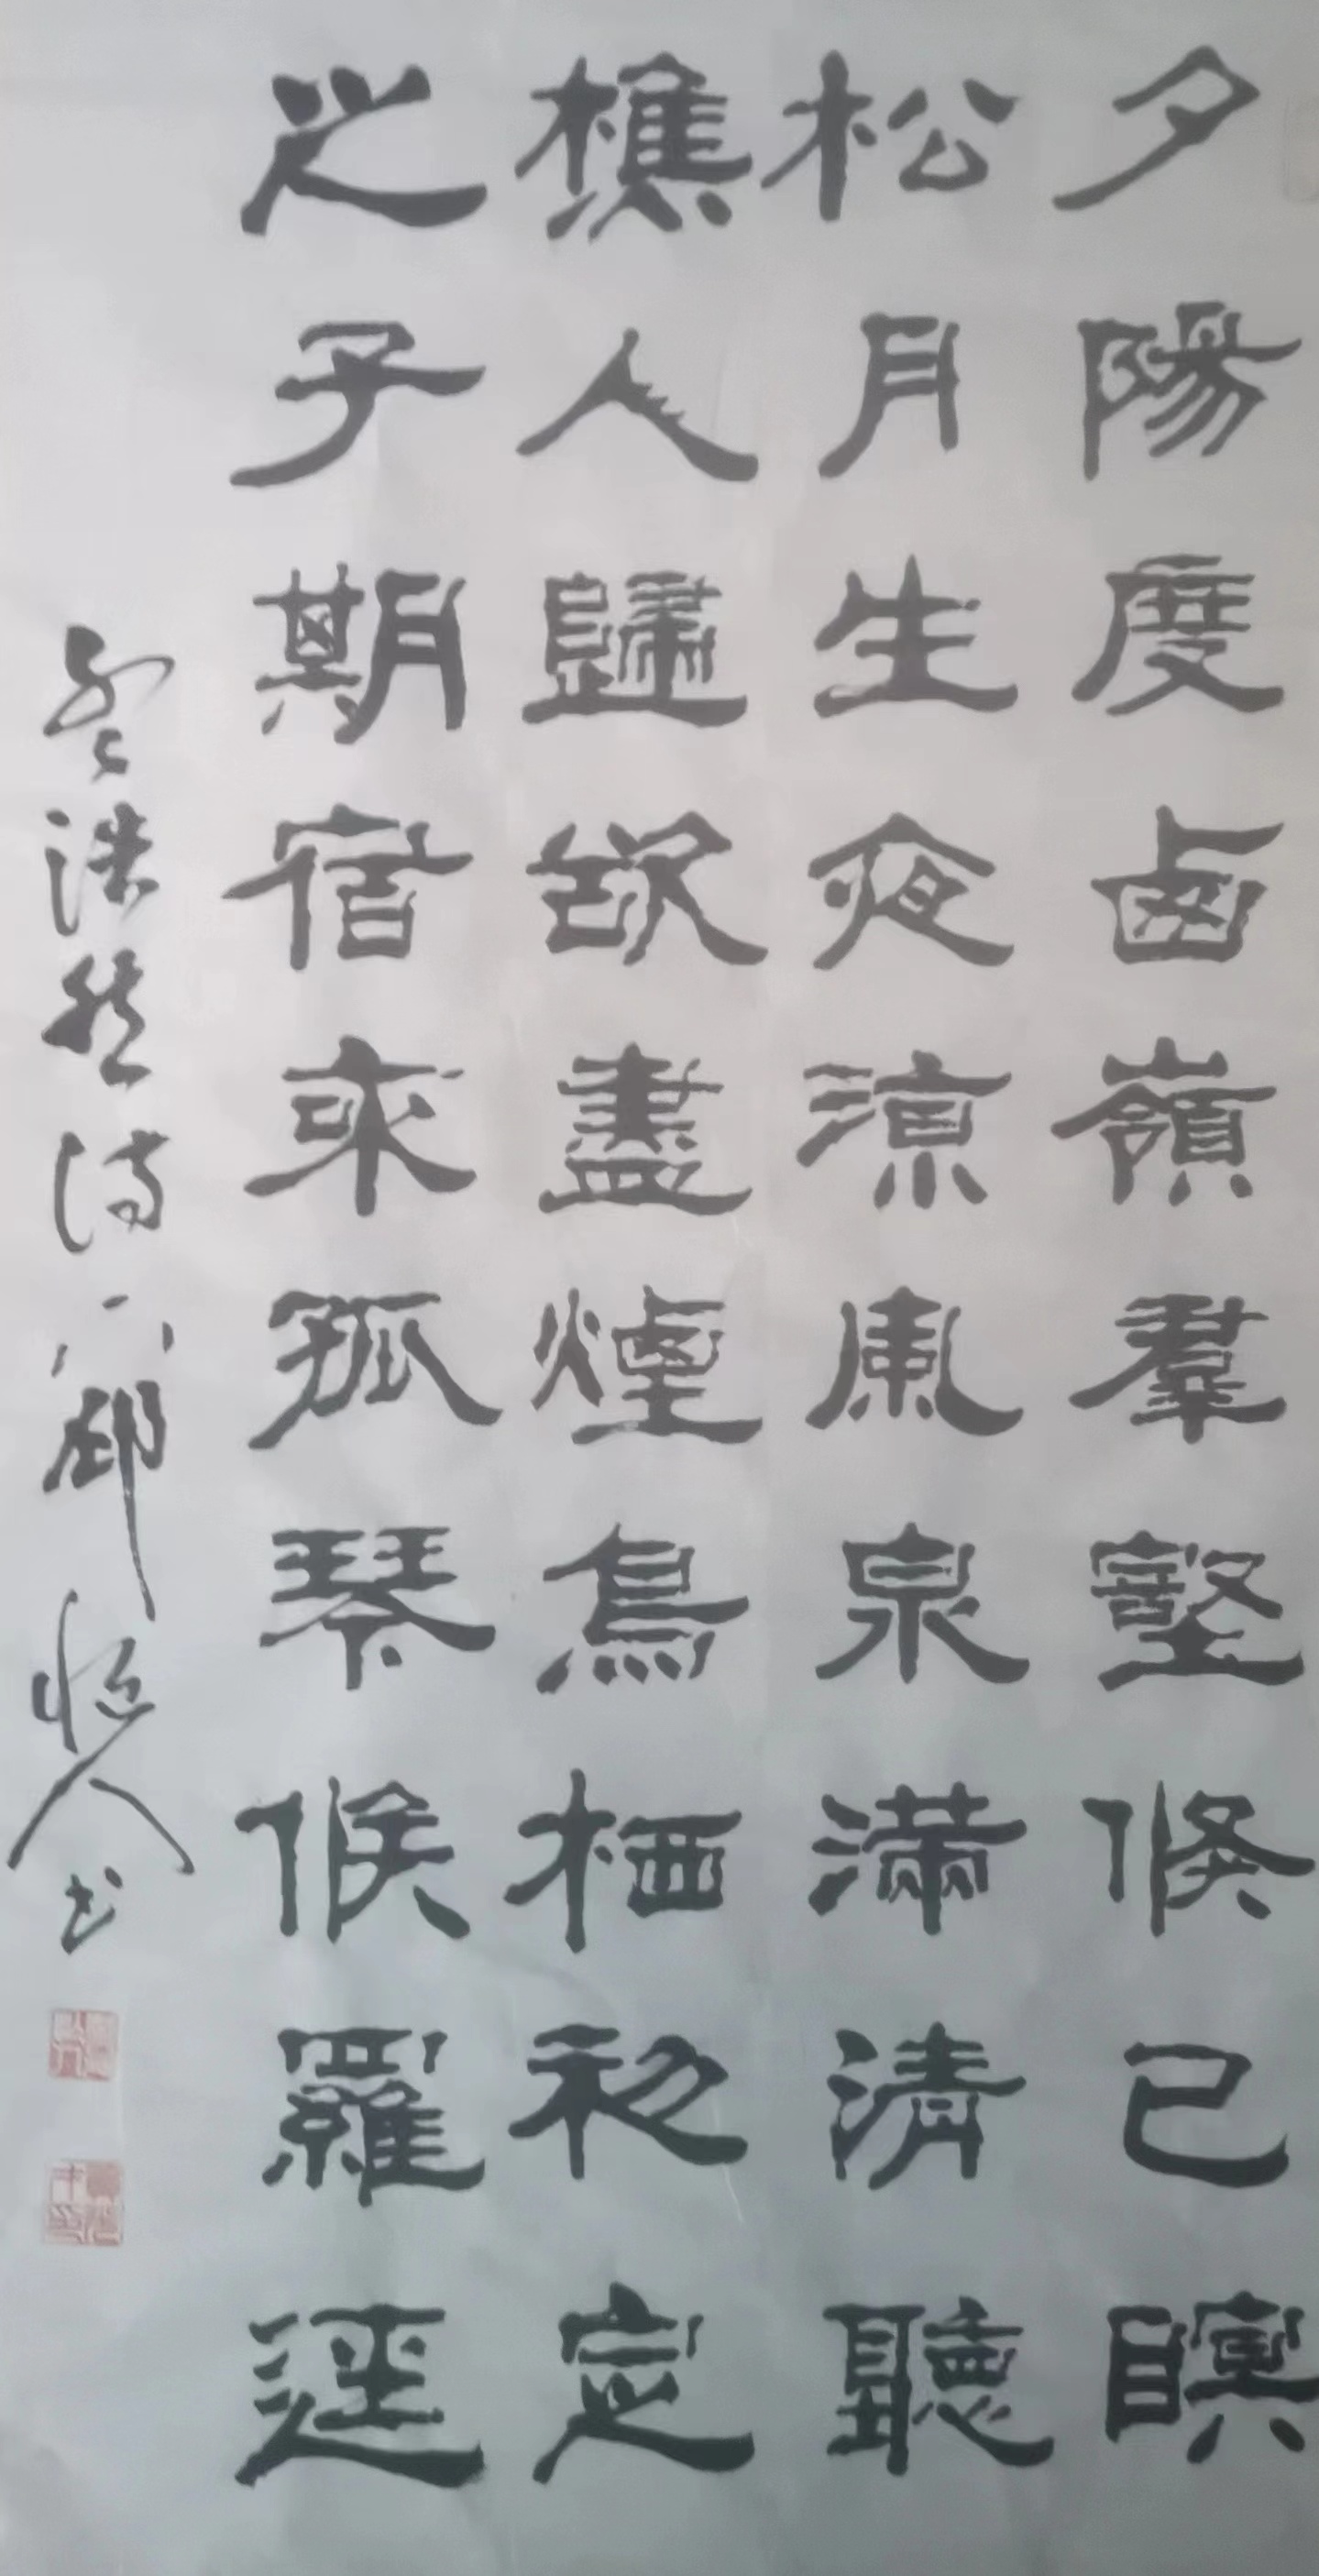 夕陽度西嶺羣壑倏已瞑
松月生夜涼風泉滿清聽
樵人歸欲盡煙鳥栖初定
之子期宿來孤琴候羅逕
孟浩然诗人书